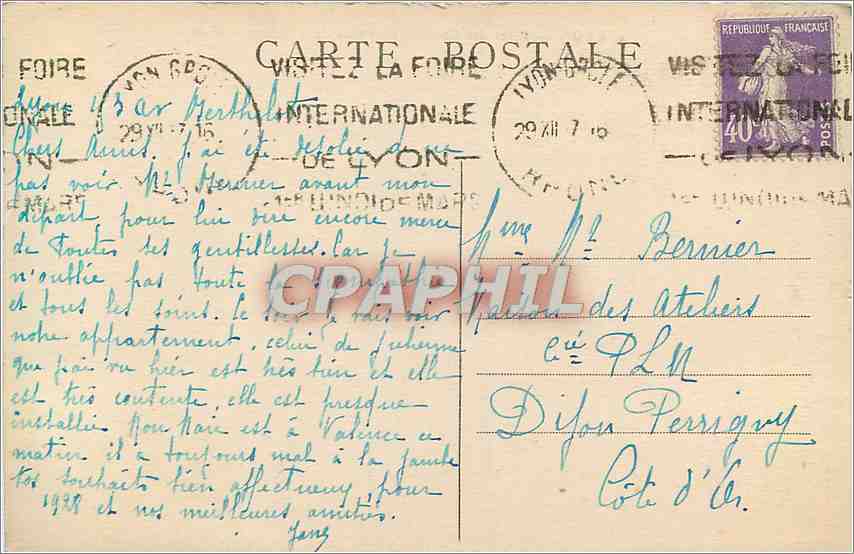 CARTE POSTALE
RÉPUBLIQUE FRANÇAISE
40
POSTES
FOIRE
ONALE
ON
MARS
LYON GROLÉE
29 XII 7 16
RHONE
VISITEZ LA FOIRE
INTERNATIONALE
DE LYON
1er LUNDI DE MARS
LYON GROLÉE
29 XII 7 16
RHONE
VISITEZ LA FOI
INTERNATIONAL
DE LYON
1er LUNDI DE MA
Lyon 43 av Berthelot
Chers Amis. J'ai été désolée de ne
pas voir Mr Bernier avant mon
départ, pour lui dire encore merci
de toutes ses gentillesses. Car je
n'oublie pas toute la sympathie
et tous les soins. Ce soir je vais voir
notre appartement, celui de Julienne
que j'ai vu hier est très bien et elle
est très contente, elle est presque
installée. Mon Mari est à Valence ce
matin il a toujours mal à la jambe
Nos souhaits bien affectueux, pour
1928 et nos meilleures amitiés.
Mme Mr Bernier
Maison des Ateliers
Cie PLM
Dijon Perrigny
Côte d'Or.
CPAPHIL